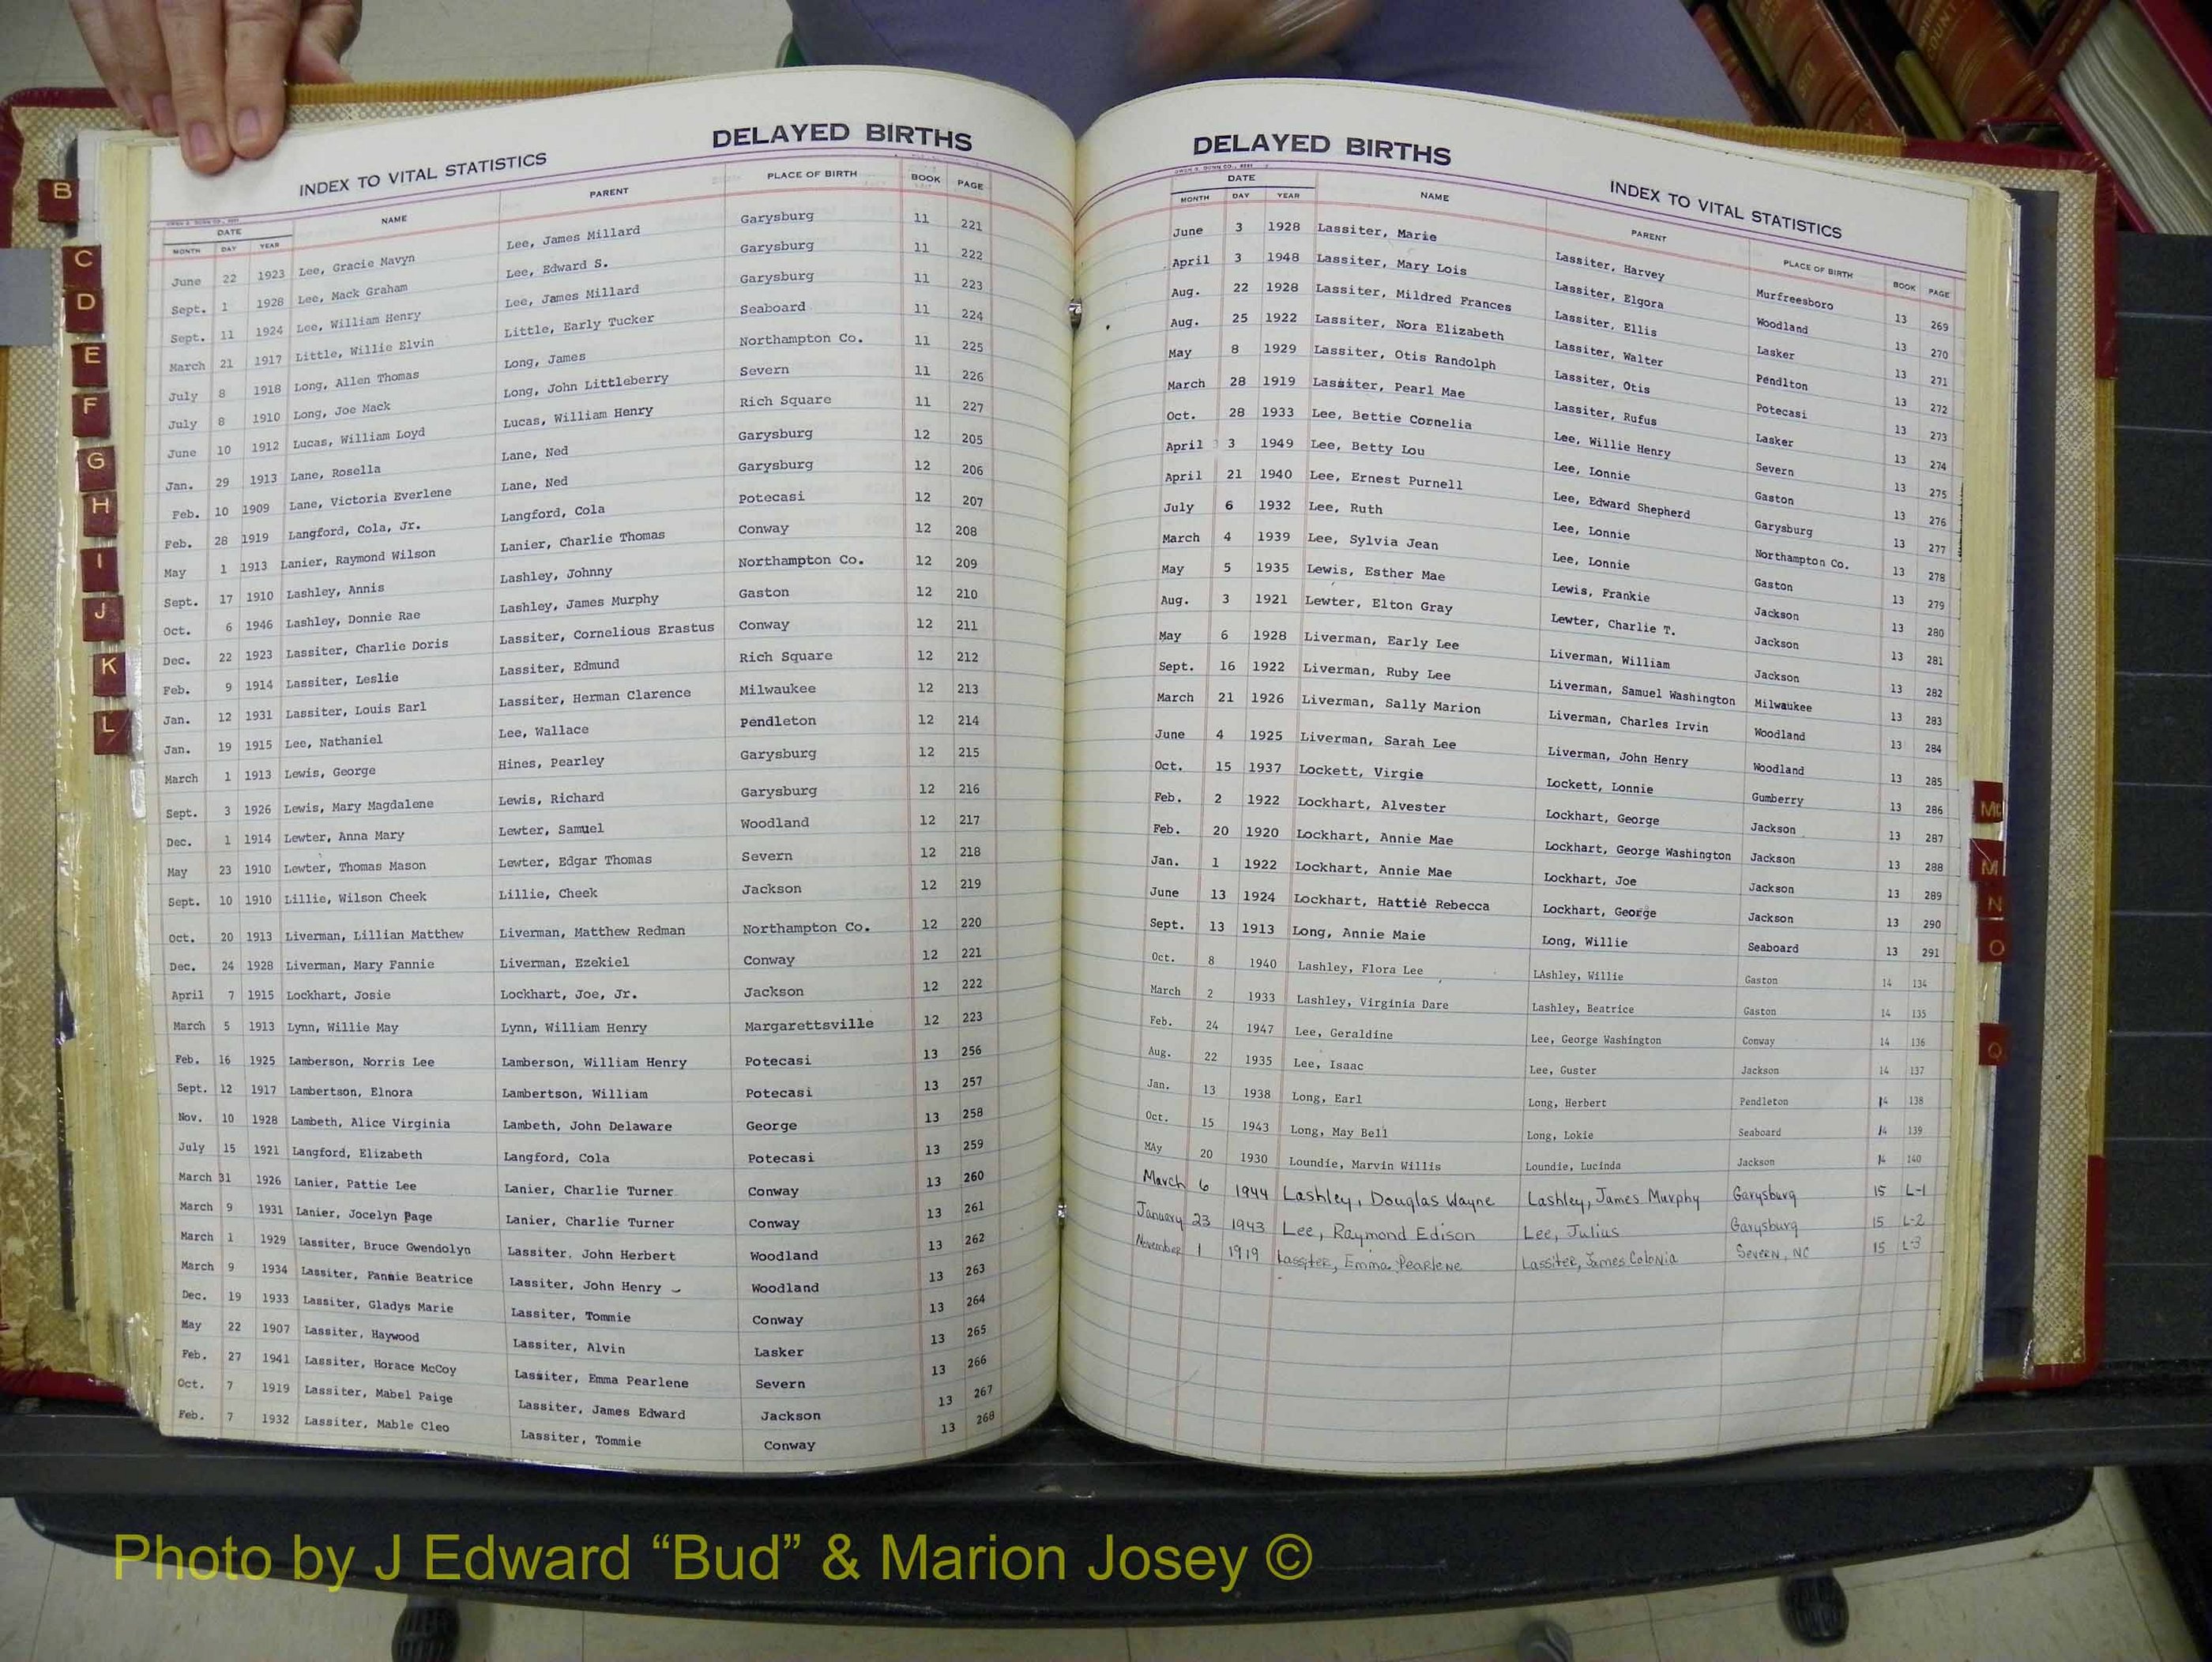 INDEX TO VITAL STATISTICS DELAYED BIRTHS
DATE NAME PARENT PLACE OF BIRTH BOOK PAGE
MONTH DAY YEAR
June 22 1923 Lee, Gracie Mavyn Lee, James Millard Garysburg 11 221
Sept. 1 1928 Lee, Mack Graham Lee, Edward S. Garysburg 11 222
Sept. 11 1924 Lee, William Henry Lee, James Millard Garysburg 11 223
March 21 1917 Little, Willie Elvin Little, Early Tucker Seaboard 11 224
July 8 1918 Long, Allen Thomas Long, James Northampton Co. 11 225
July 8 1910 Long, Joe Mack Long, John Littleberry Severn 11 226
June 10 1912 Lucas, William Loyd Lucas, William Henry Rich Square 11 227
Jan. 29 1913 Lane, Rosella Lane, Ned Garysburg 12 205
Feb. 10 1909 Lane, Victoria Everlene Lane, Ned Garysburg 12 206
Feb. 28 1919 Langford, Cola, Jr. Langford, Cola Potecasi 12 207
May 1 1913 Lanier, Raymond Wilson Lanier, Charlie Thomas Conway 12 208
Sept. 17 1910 Lashley, Annis Lashley, Johnny Northampton Co. 12 209
Oct. 6 1946 Lashley, Donnie Rae Lashley, James Murphy Gaston 12 210
Dec. 22 1923 Lassiter, Charlie Doris Lassiter, Cornelious Erastus Conway 12 211
Feb. 9 1914 Lassiter, Leslie Lassiter, Edmund Rich Square 12 212
Jan. 12 1931 Lassiter, Louis Earl Lassiter, Herman Clarence Milwaukee 12 213
Jan. 19 1915 Lee, Nathaniel Lee, Wallace Pendleton 12 214
March 1 1913 Lewis, George Hines, Pearley Garysburg 12 215
Sept. 3 1926 Lewis, Mary Magdalene Lewis, Richard Garysburg 12 216
Dec. 1 1914 Lewter, Anna Mary Lewter, Samuel Woodland 12 217
May 23 1910 Lewter, Thomas Mason Lewter, Edgar Thomas Severn 12 218
Sept. 10 1910 Lillie, Wilson Cheek Lillie, Cheek Jackson 12 219
Oct. 20 1913 Liverman, Lillian Matthew Liverman, Matthew Redman Northampton Co. 12 220
Dec. 24 1928 Liverman, Mary Fannie Liverman, Ezekiel Conway 12 221
April 7 1915 Lockhart, Josie Lockhart, Joe, Jr. Jackson 12 222
March 5 1913 Lynn, Willie May Lynn, William Henry Margarettsville 12 223
Feb. 16 1925 Lamberson, Norris Lee Lamberson, William Henry Potecasi 13 256
Sept. 12 1917 Lambertson, Elnora Lambertson, William Potecasi 13 257
Nov. 10 1928 Lambeth, Alice Virginia Lambeth, John Delaware George 13 258
July 15 1921 Langford, Elizabeth Langford, Cola Potecasi 13 259
March 31 1926 Lanier, Pattie Lee Lanier, Charlie Turner Conway 13 260
March 9 1931 Lanier, Jocelyn Page Lanier, Charlie Turner Conway 13 261
March 1 1929 Lassiter, Bruce Gwendolyn Lassiter, John Herbert Woodland 13 262
March 9 1934 Lassiter, Fannie Beatrice Lassiter, John Henry Woodland 13 263
Dec. 19 1933 Lassiter, Gladys Marie Lassiter, Tommie Conway 13 264
May 22 1907 Lassiter, Haywood Lassiter, Alvin Lasker 13 265
Feb. 27 1941 Lassiter, Horace McCoy Lassiter, Emma Pearlene Severn 13 266
Oct. 7 1919 Lassiter, Mabel Paige Lassiter, James Edward Jackson 13 267
Feb. 7 1932 Lassiter, Mable Cleo Lassiter, Tommie Conway 13 268
DELAYED BIRTHS INDEX TO VITAL STATISTICS
DATE NAME PARENT PLACE OF BIRTH BOOK PAGE
MONTH DAY YEAR
June 3 1928 Lassiter, Marie Lassiter, Harvey Murfreesboro 13 269
April 3 1948 Lassiter, Mary Lois Lassiter, Elgora Woodland 13 270
Aug. 22 1928 Lassiter, Mildred Frances Lassiter, Ellis Lasker 13 271
Aug. 25 1922 Lassiter, Nora Elizabeth Lassiter, Walter Pendlton 13 272
May 8 1929 Lassiter, Otis Randolph Lassiter, Otis Potecasi 13 273
March 28 1919 Lassiter, Pearl Mae Lassiter, Rufus Lasker 13 274
Oct. 28 1933 Lee, Bettie Cornelia Lee, Willie Henry Severn 13 275
April 3 1949 Lee, Betty Lou Lee, Lonnie Gaston 13 276
April 21 1940 Lee, Ernest Purnell Lee, Edward Shepherd Garysburg 13 277
July 6 1932 Lee, Ruth Lee, Lonnie Northampton Co. 13 278
March 4 1939 Lee, Sylvia Jean Lee, Lonnie Gaston 13 279
May 5 1935 Lewis, Esther Mae Lewis, Frankie Jackson 13 280
Aug. 3 1921 Lewter, Elton Gray Lewter, Charlie T. Jackson 13 281
May 6 1928 Liverman, Early Lee Liverman, William Jackson 13 282
Sept. 16 1922 Liverman, Ruby Lee Liverman, Samuel Washington Milwaukee 13 283
March 21 1926 Liverman, Sally Marion Liverman, Charles Irvin Woodland 13 284
June 4 1925 Liverman, Sarah Lee Liverman, John Henry Woodland 13 285
Oct. 15 1937 Lockett, Virgie Lockett, Lonnie Gumberry 13 286
Feb. 2 1922 Lockhart, Alvester Lockhart, George Jackson 13 287
Feb. 20 1920 Lockhart, Annie Mae Lockhart, George Washington Jackson 13 288
Jan. 1 1922 Lockhart, Annie Mae Lockhart, Joe Jackson 13 289
June 13 1924 Lockhart, Hattie Rebecca Lockhart, George Jackson 13 290
Sept. 13 1913 Long, Annie Maie Long, Willie Seaboard 13 291
Oct. 8 1940 Lashley, Flora Lee LAshley, Willie Gaston 14 134
March 2 1933 Lashley, Virginia Dare Lashley, Beatrice Gaston 14 135
Feb. 24 1947 Lee, Geraldine Lee, George Washington Conway 14 136
Aug. 22 1935 Lee, Isaac Lee, Guster Jackson 14 137
Jan. 13 1938 Long, Earl Long, Herbert Pendleton 14 138
Oct. 15 1943 Long, May Bell Long, Lokie Seaboard 14 139
MAy 20 1930 Loundie, Marvin Willis Loundie, Lucinda Jackson 14 140
March 6 1944 Lashley, Douglas Wayne Lashley, James Murphy Garysburg 15 L-1
January 23 1943 Lee, Raymond Edison Lee, Julius Garysburg 15 L-2
November 1 1919 Lassiter, Emma Pearlene Lassiter, James Colonia Severn, NC 15 L-3
B
C
D
E
F
G
H
I
J
K
L
Mc
M
N
O
Q
COUNTY
Photo by J Edward “Bud” & Marion Josey ©